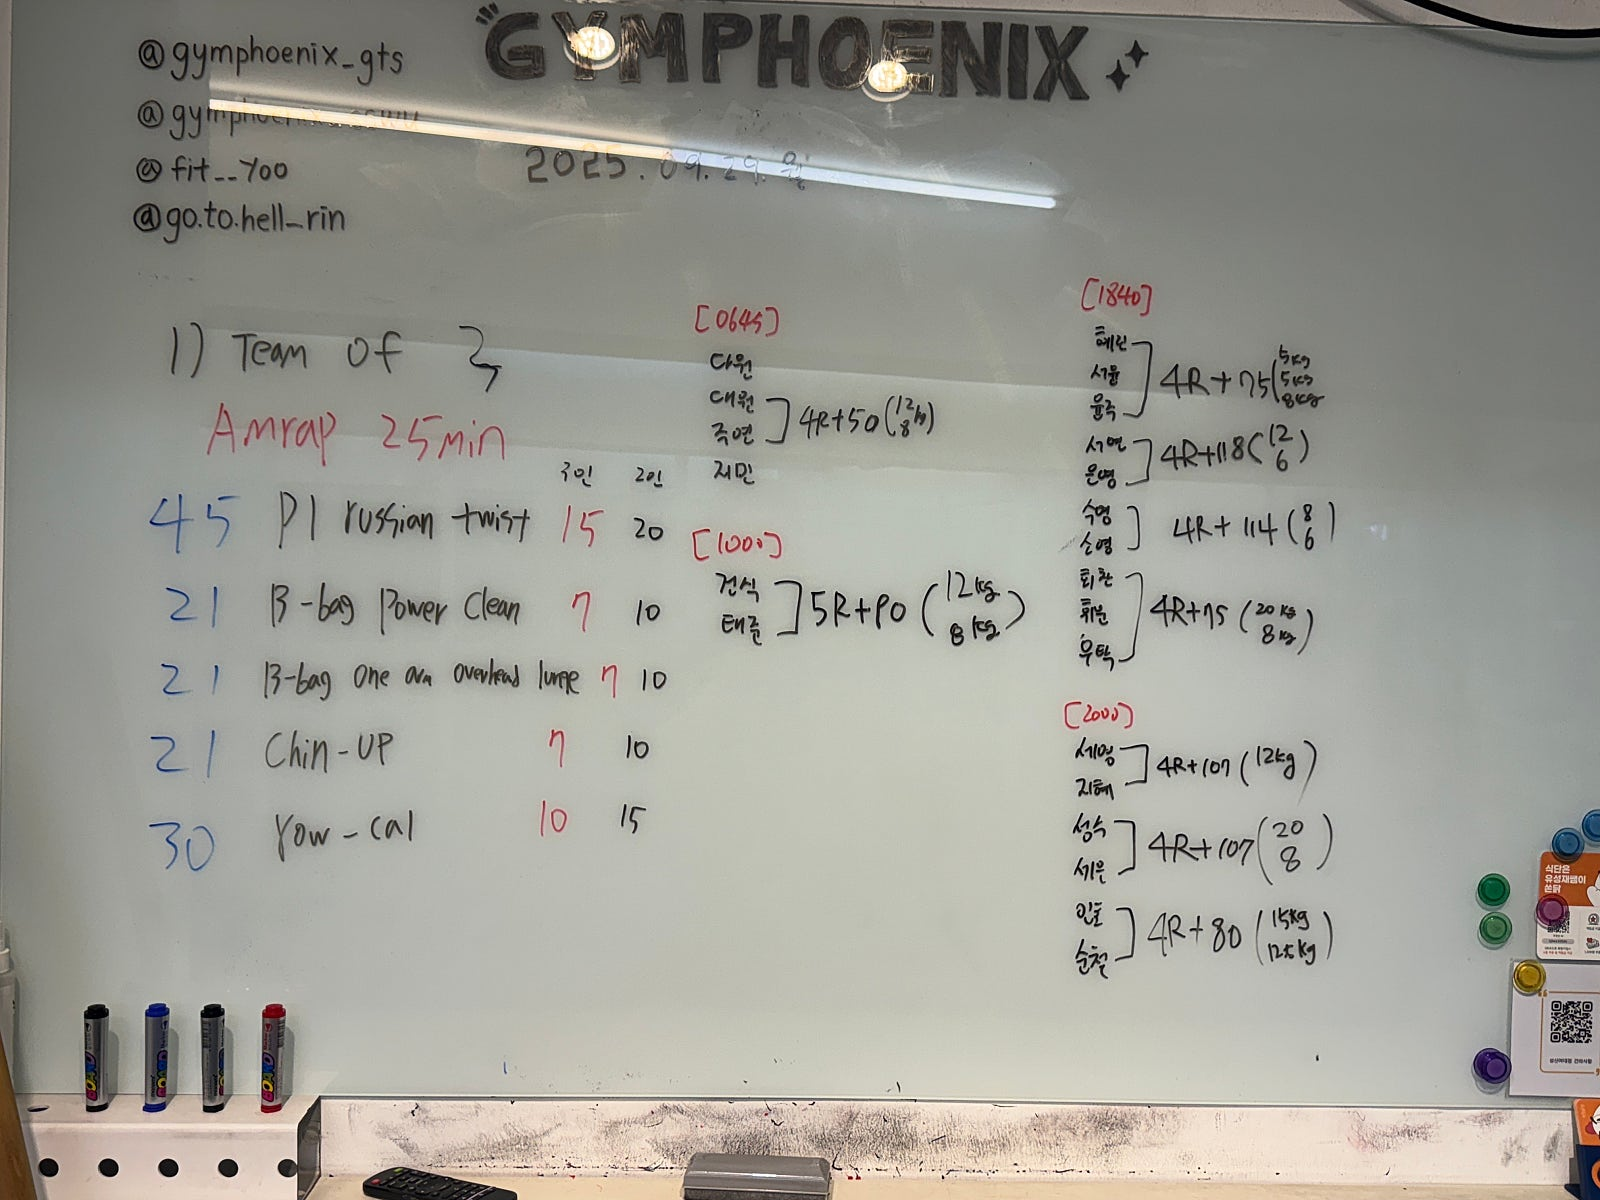 GYMPHOENIX
@gymphoenix_gts
@fit__yoo
@go.to.hell_rin
2025.09.29.월
1) Team of 3
Amrap 25min
3인 2인
45 Pl russian twist 15 20
21 B-bag Power Clean 7 10
21 B-bag One arm overhead lunge 7 10
21 Chin-UP 7 10
30 row-cal 10 15
[0645]
다원
대원
주연
4R+50 (12 8 kg)
지민
[1000]
건식
태준
5R+90 (12kg 8kg)
[1840]
혜린
서윤
윤주
4R+75 (5kg 5kg 8kg
서연
은영
4R+118 (12 6)
수영
선영
4R+114 (8 6)
희찬
휘분
우탁
4R+75 (20kg 8kg)
[2000]
세영
지혜
4R+107 (12kg)
성수
세은
4R+107 (20 8)
인호
순철
4R+80 (15kg 12.5kg)
식단은
유성재쌤이
쏜닭